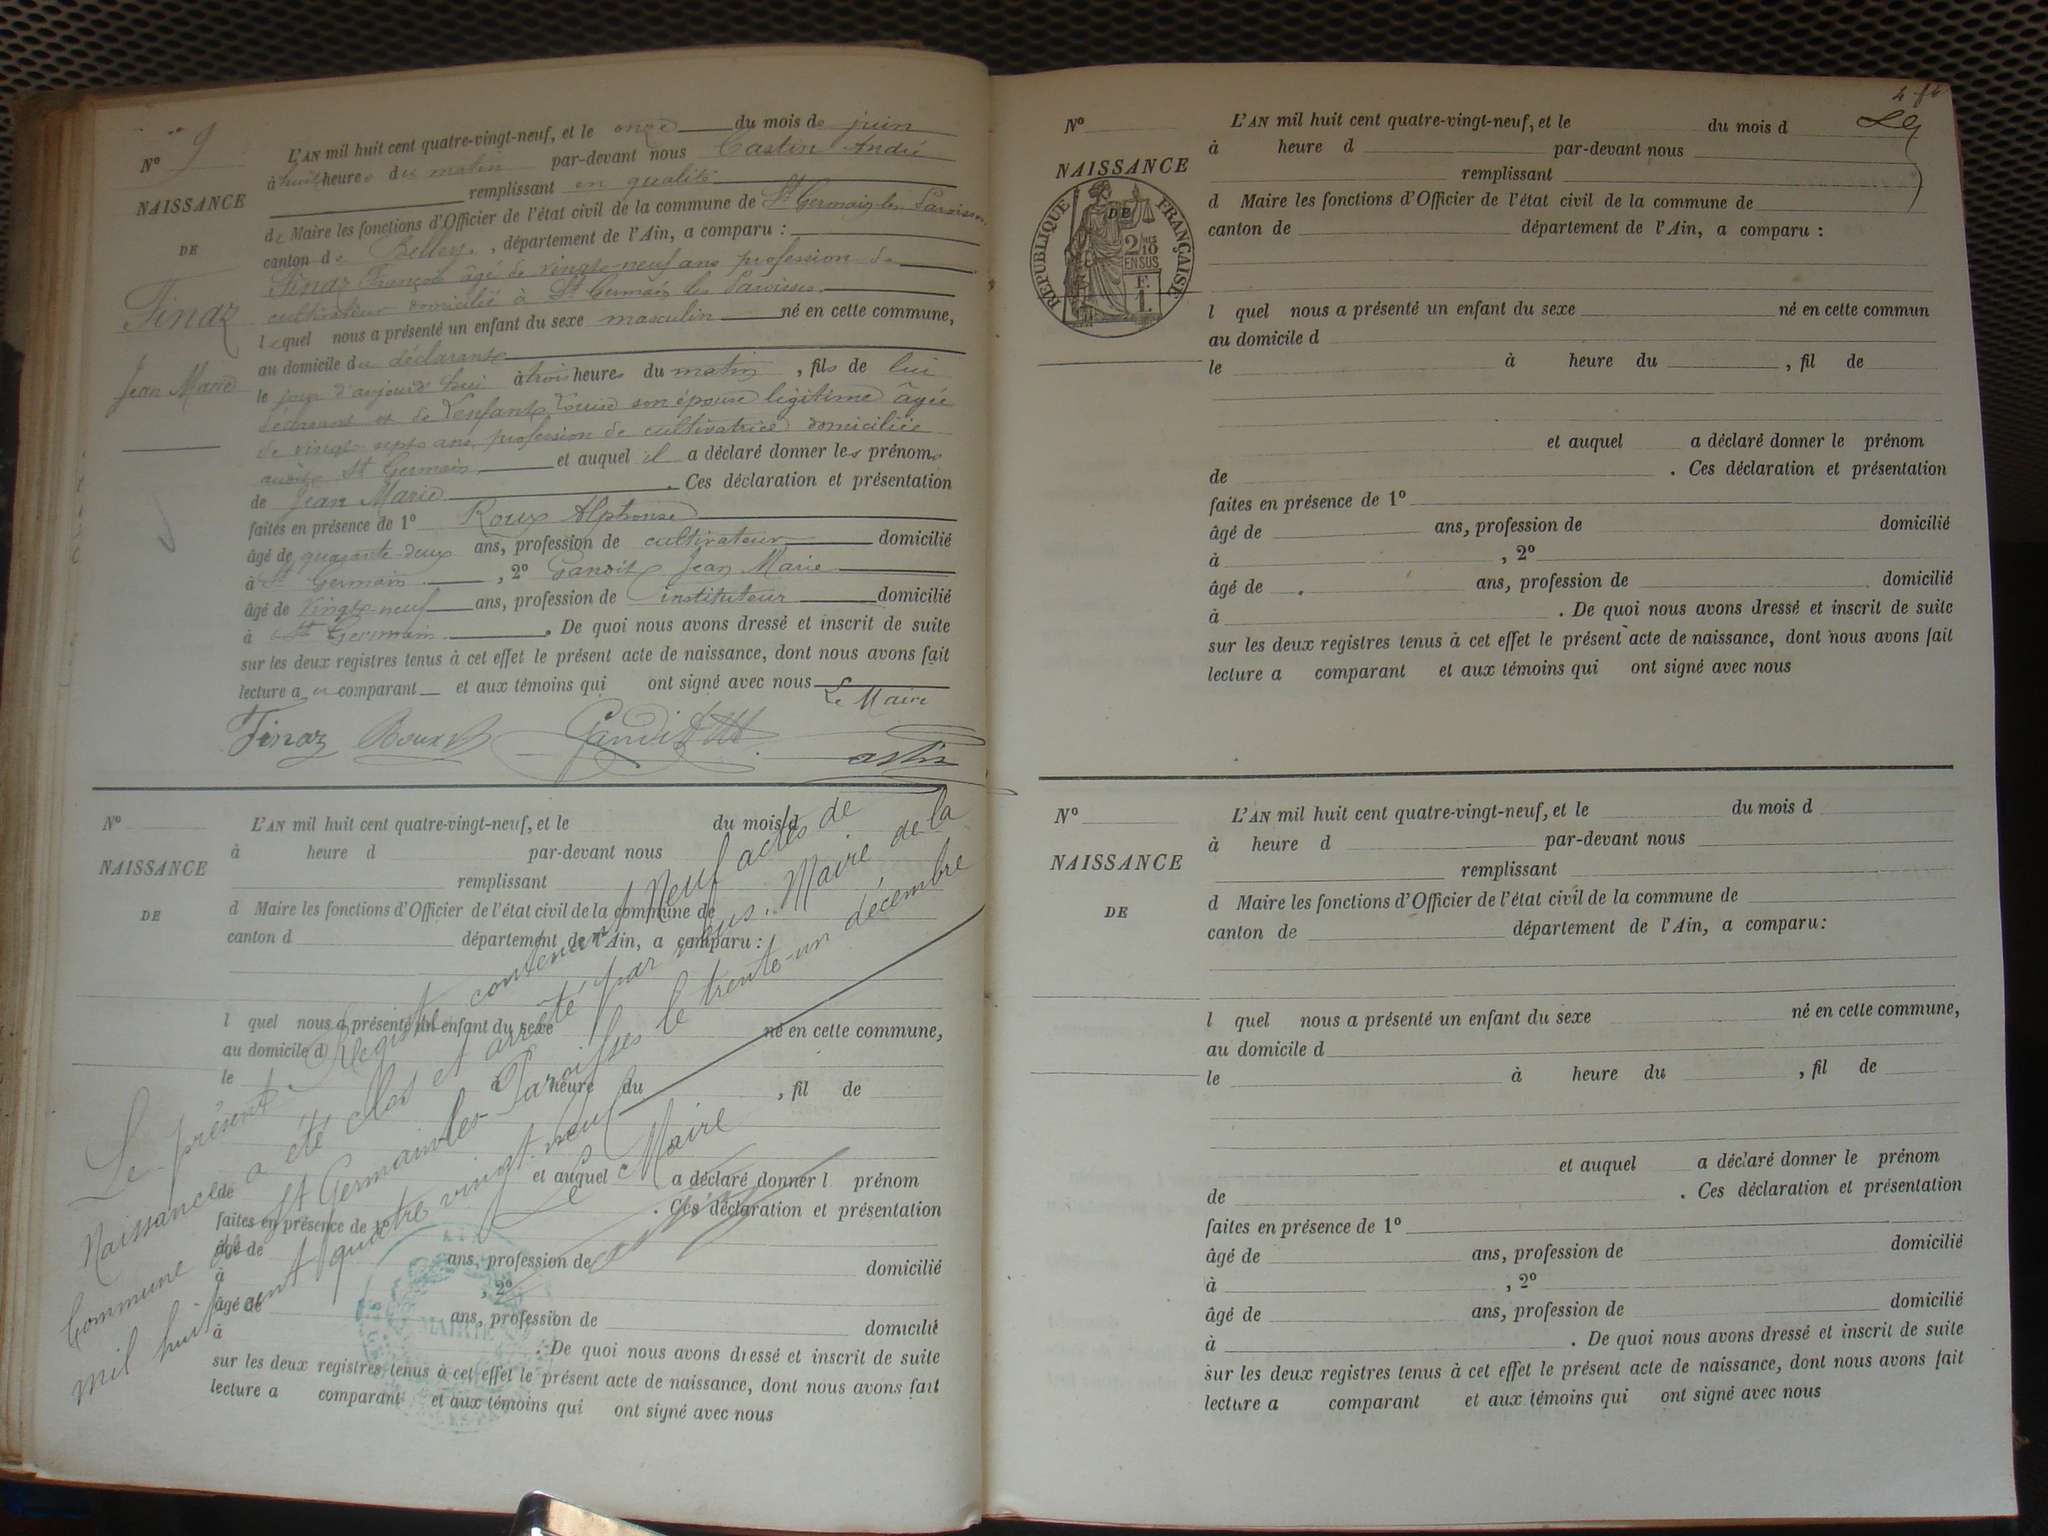 N° 9
NAISSANCE
DE
Finaz
Jean Marie
L'AN mil huit cent quatre-vingt-neuf, et le onze du mois de juin
à huit heures du matin par-devant nous Castin André
remplissant en qualité
de Maire les fonctions d'Officier de l'état civil de la commune de St Germain les Paroisses
canton de Belley, département de l'Ain, a comparu :
Finaz François âgé de vingt-neuf ans profession de
cultivateur domicilié à St Germain les Paroisses.
lequel nous a présenté un enfant du sexe masculin né en cette commune,
au domicile du déclarant
le jour d'aujourd'hui à trois heures du matin, fils de lui
déclarant et de Louise son épouse légitime âgée
de vingt sept ans, profession de cultivatrice domiciliée
audit St Germain et auquel il a déclaré donner les prénoms
de Jean Marie. Ces déclaration et présentation
faites en présence de 1° Roux Alphonse
âgé de quarante-deux ans, profession de cultivateur domicilié
à St Germain, 2° Gandit Jean Marie
âgé de vingt-neuf ans, profession de instituteur domicilié
à St Germain. De quoi nous avons dressé et inscrit de suite
sur les deux registres tenus à cet effet le présent acte de naissance, dont nous avons fait
lecture au comparant et aux témoins qui ont signé avec nous
Le Maire
Finaz Roux Gandit Castin
N°
NAISSANCE
DE
L'AN mil huit cent quatre-vingt-neuf, et le du mois d
à heure d par-devant nous
remplissant
d Maire les fonctions d'Officier de l'état civil de la commune de
canton d département de l'Ain, a comparu :
l quel nous a présenté un enfant du sexe né en cette commune,
au domicile d
le à heure du , fil de
et auquel a déclaré donner l prénom
de . Ces déclaration et présentation
faites en présence de 1°
âgé de ans, profession de domicilié
à , 2°
âgé de ans, profession de domicilié
à . De quoi nous avons dressé et inscrit de suite
sur les deux registres tenus à cet effet le présent acte de naissance, dont nous avons fait
lecture a comparant et aux témoins qui ont signé avec nous
Le présent Registre contenant Neuf actes de
Naissance a été clos et arrêté par nous, Maire de la
Commune de St Germain les Paroisses le trente-un décembre
mil huit cent quatre vingt-neuf
Le Maire
MAIRIE
4 f
N°
NAISSANCE
DE
RÉPUBLIQUE FRANÇAISE
2/10 EN SUS
F. 1.
L'AN mil huit cent quatre-vingt-neuf, et le du mois d
à heure d par-devant nous
remplissant
d Maire les fonctions d'Officier de l'état civil de la commune de
canton de département de l'Ain, a comparu :
l quel nous a présenté un enfant du sexe né en cette commun
au domicile d
le à heure du , fil de
et auquel a déclaré donner le prénom
de . Ces déclaration et présentation
faites en présence de 1°
âgé de ans, profession de domicilié
à , 2°
âgé de ans, profession de domicilié
à . De quoi nous avons dressé et inscrit de suite
sur les deux registres tenus à cet effet le présent acte de naissance, dont nous avons fait
lecture a comparant et aux témoins qui ont signé avec nous
N°
NAISSANCE
DE
L'AN mil huit cent quatre-vingt-neuf, et le du mois d
à heure d par-devant nous
remplissant
d Maire les fonctions d'Officier de l'état civil de la commune de
canton de département de l'Ain, a comparu :
l quel nous a présenté un enfant du sexe né en cette commune,
au domicile d
le à heure du , fil de
et auquel a déclaré donner le prénom
de . Ces déclaration et présentation
faites en présence de 1°
âgé de ans, profession de domicilié
à , 2°
âgé de ans, profession de domicilié
à . De quoi nous avons dressé et inscrit de suite
sur les deux registres tenus à cet effet le présent acte de naissance, dont nous avons fait
lecture a comparant et aux témoins qui ont signé avec nous